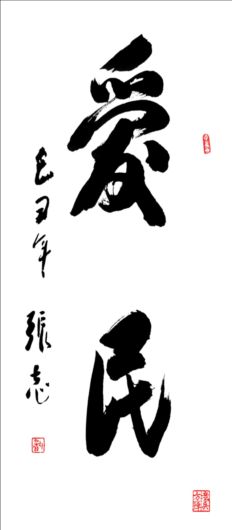 愛民
己丑年 張志